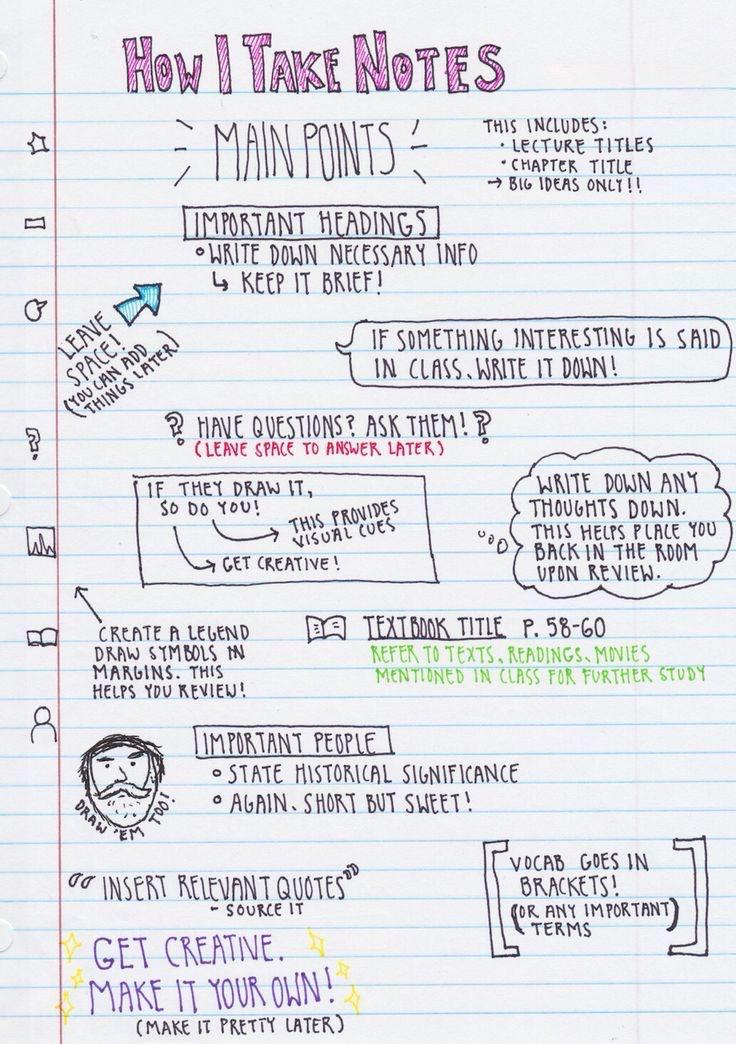 HOW I TAKE NOTES
MAIN POINTS
THIS INCLUDES:
• LECTURE TITLES
• CHAPTER TITLE
→ BIG IDEAS ONLY!!
IMPORTANT HEADINGS
• WRITE DOWN NECESSARY INFO
↳ KEEP IT BRIEF!
LEAVE
SPACE!
(YOU CAN ADD
THINGS LATER)
IF SOMETHING INTERESTING IS SAID
IN CLASS, WRITE IT DOWN!
? HAVE QUESTIONS? ASK THEM! ?
(LEAVE SPACE TO ANSWER LATER)
?
IF THEY DRAW IT,
SO DO YOU!
THIS PROVIDES
VISUAL CUES
GET CREATIVE!
WRITE DOWN ANY
THOUGHTS DOWN.
THIS HELPS PLACE YOU
BACK IN THE ROOM
UPON REVIEW.
CREATE A LEGEND
DRAW SYMBOLS IN
MARGINS. THIS
HELPS YOU REVIEW!
TEXTBOOK TITLE P. 58-60
REFER TO TEXTS, READINGS, MOVIES
MENTIONED IN CLASS FOR FURTHER STUDY
IMPORTANT PEOPLE
• STATE HISTORICAL SIGNIFICANCE
• AGAIN, SHORT BUT SWEET!
DRAW 'EM TOO!
"INSERT RELEVANT QUOTES"
- SOURCE IT
[VOCAB GOES IN
BRACKETS!
(OR ANY IMPORTANT)
TERMS]
GET CREATIVE.
MAKE IT YOUR OWN!
(MAKE IT PRETTY LATER)